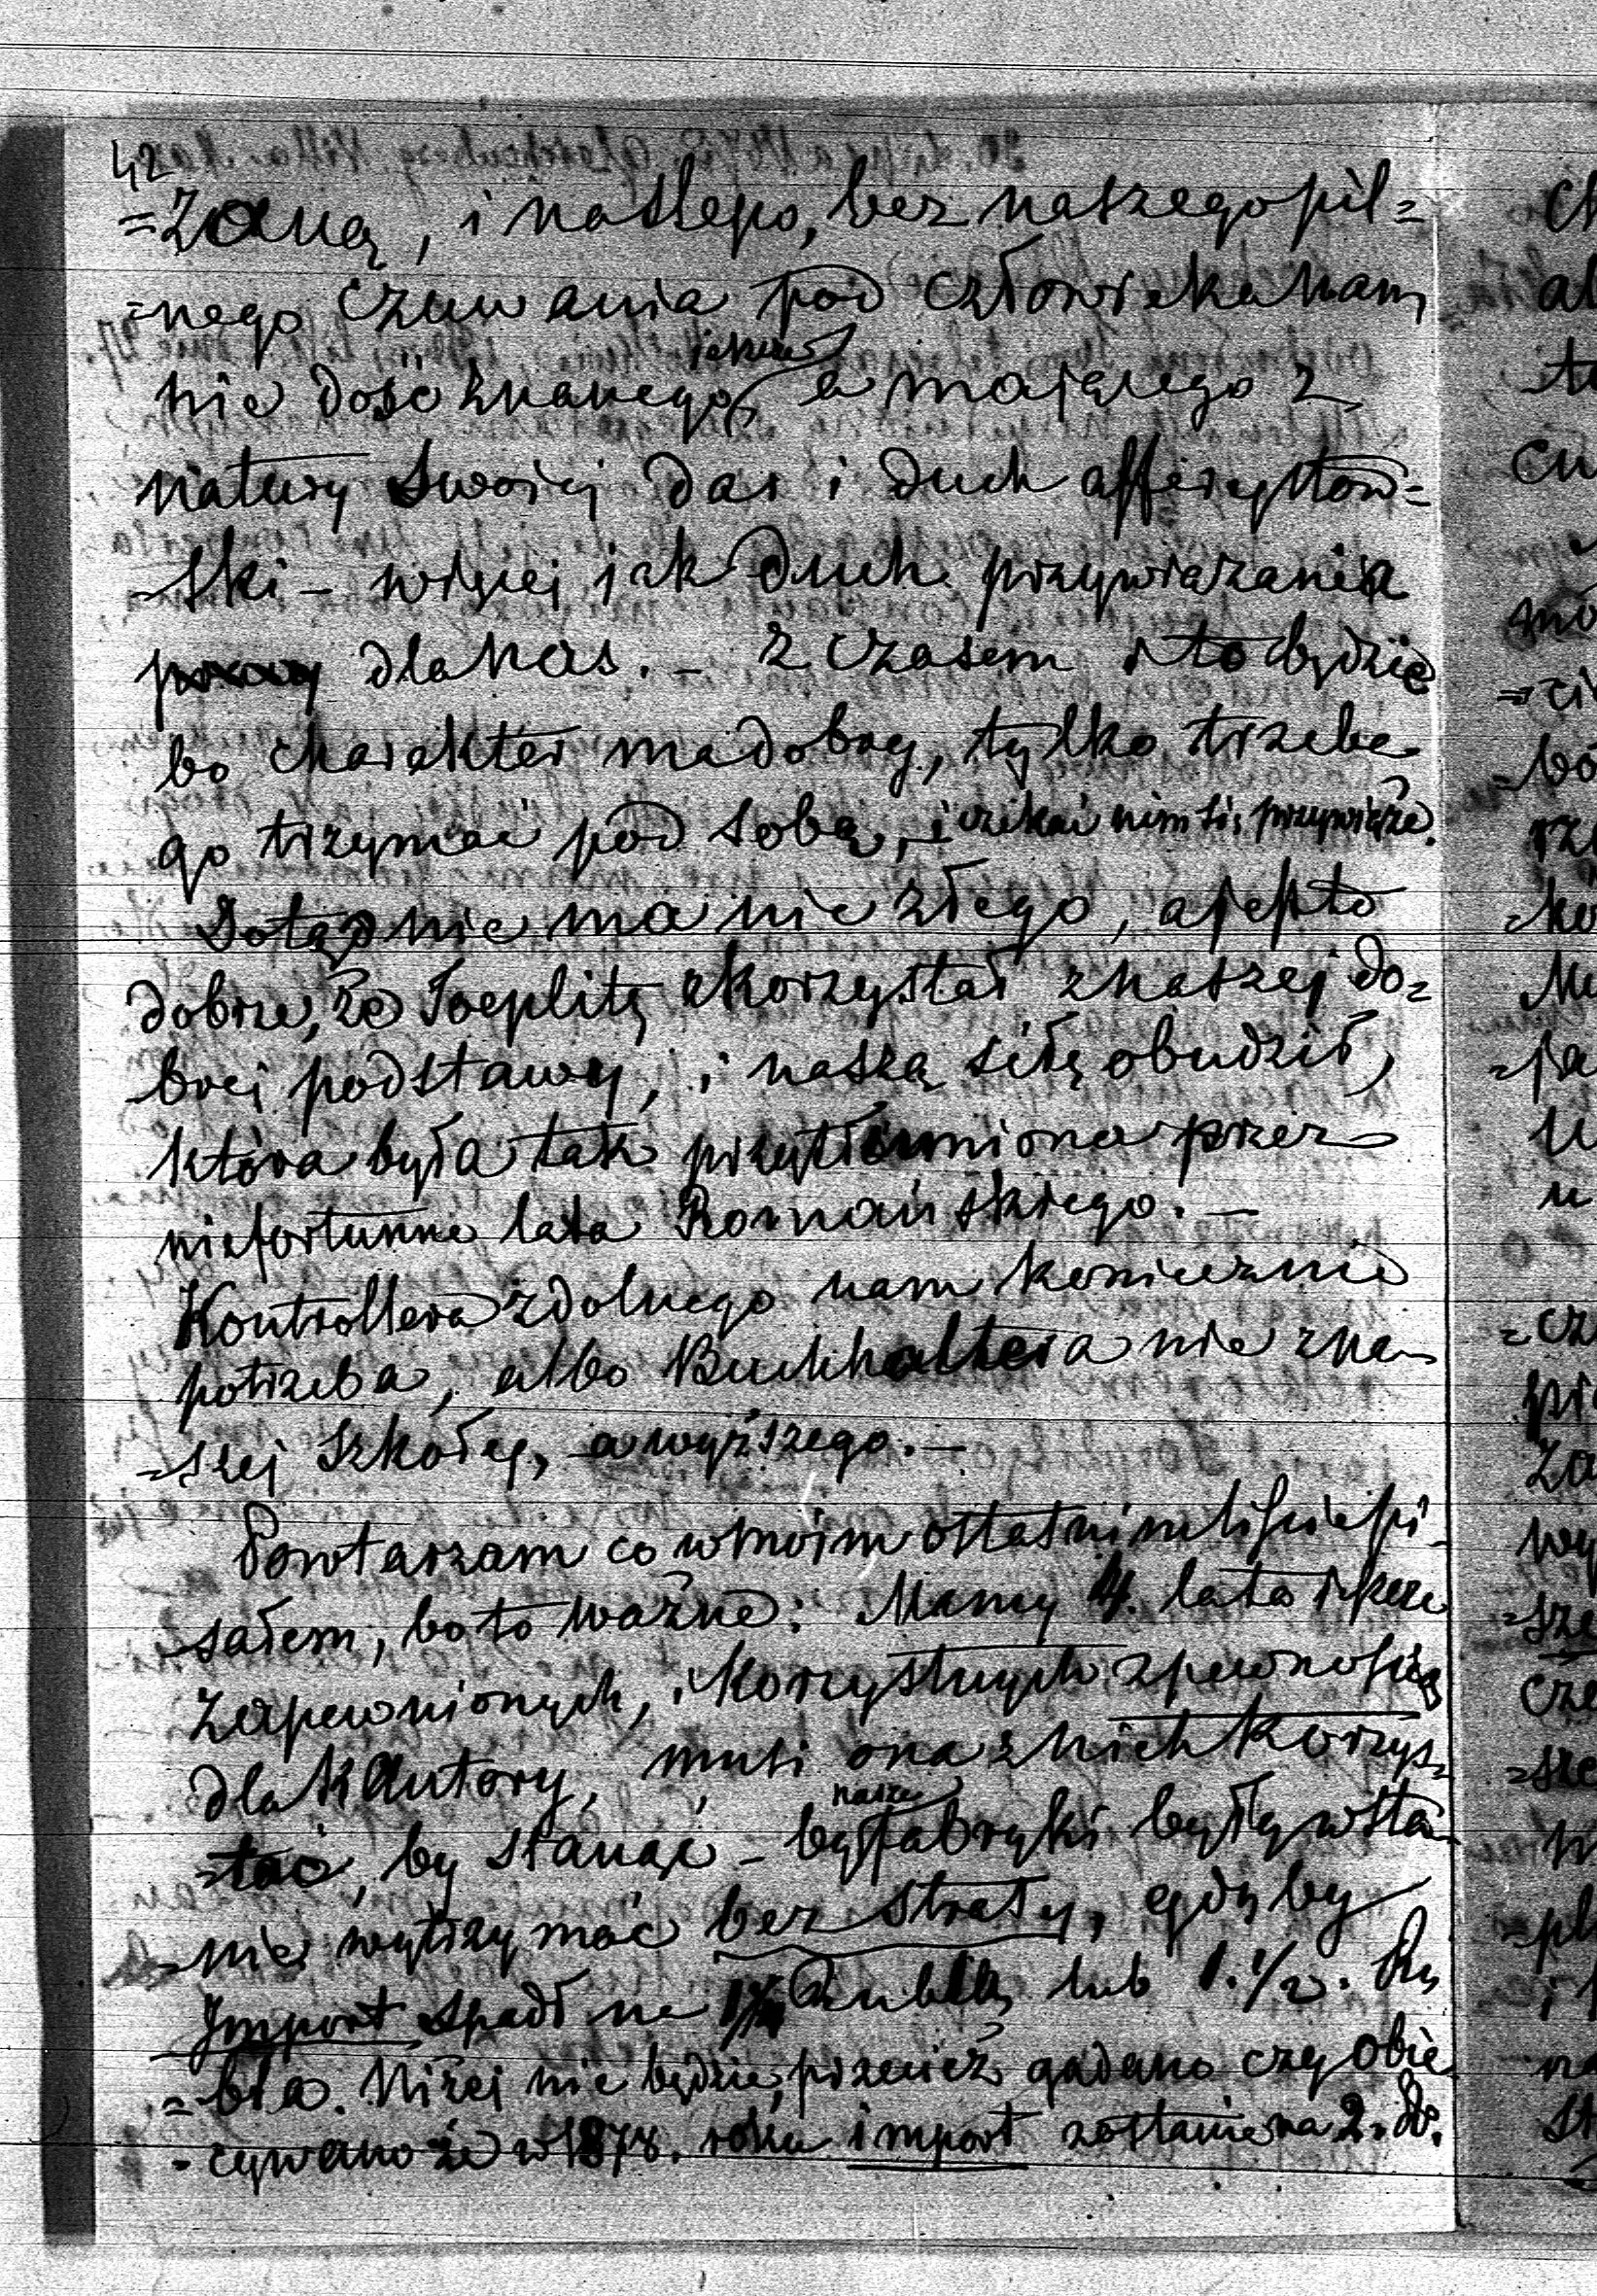 42
=zaną, i naślepo, bez naszego pil=
=nego czuwania pod człowieka nam
nie dość znanego jeszcze, a mającego z
natury swojej dar i duch afferystow=
=ski – więcej jak duch przywiązania
dla nas. – Z czasem i to będzie
bo charakter ma dobry, tylko trzeba
go trzymać pod sobą, i czekać nim się przywiąże.
Dotąd nie ma nic złego, a jest to
dobrze, że Toeplitz skorzystał z naszej do=
brej podstawy, i naszą siłę obudził,
która była tak przytłumiona przez
niefortunne lata Poznańskiego. –
Kontrollera zdolnego nam koniecznie
potrzeba, albo Buchhaltera nie zna
=szej szkoły, a wyższego. –
Powtarzam co w moim ostatnim liście pi
sałem, bo to ważne: Mamy 4. lata jeszcze
zapewnionych, i korzystnych z pewnością
dla Kantory, musi ona z nich korzys=
=tać, by stanąć – by nasze fabryki były w sta
=nie wytrzymać bez straty, gdyby
Import spadł na Rubla, lub 1.1/2. Ru
=bla. Niżej nie będzie, przecież gadano czy obie
=cywano że w 1878. roku import zostanie na 2. Rr.